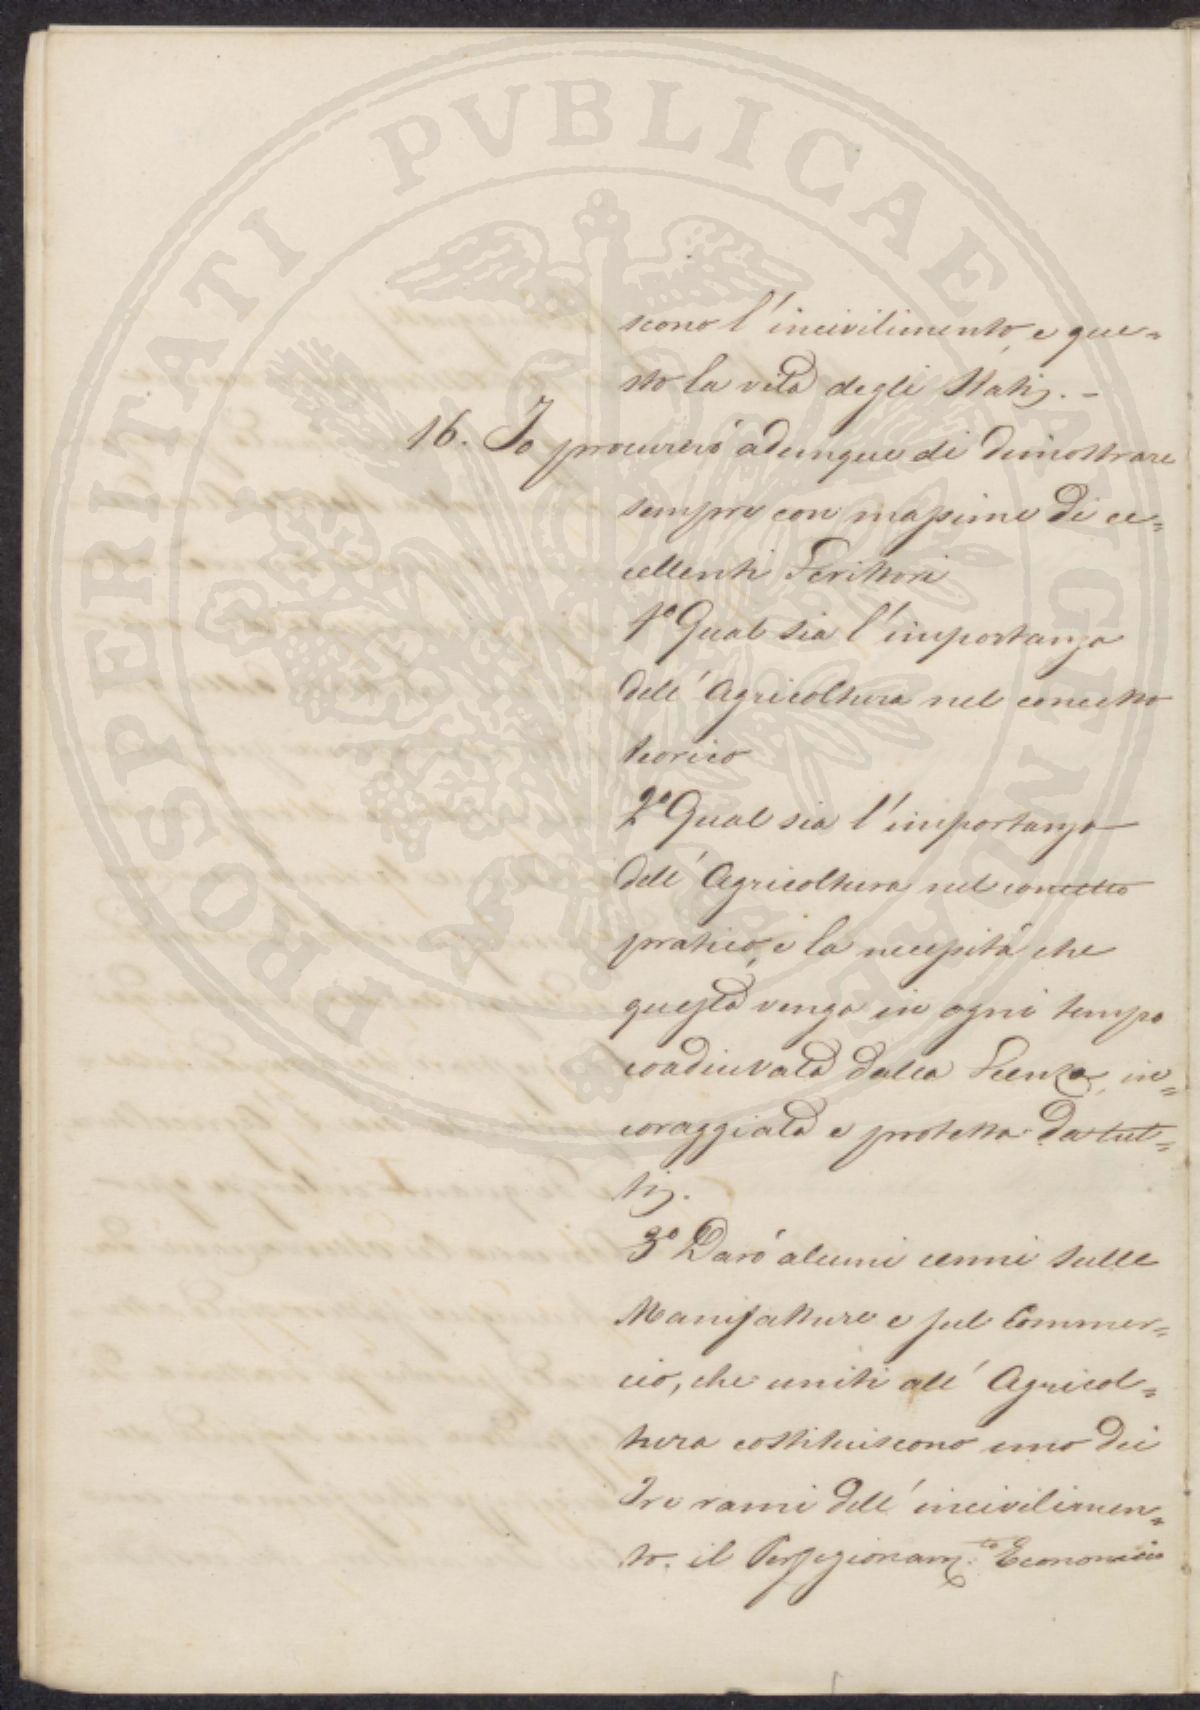 PROSPERITATI PVBLICAE AVGENDAE
scono l'incivilimento, e que=
sto la vita degli Statij. -
16. Io procurerò adunque di dimostrare
sempre con massime di ec=
cellenti Scrittori
1º Qual sia l'importanza
dell'Agricoltura nel concetto
teorico
2º Qual sia l'importanza
dell'Agricoltura nel concetto
pratico, e la necessità che
questa venga in ogni tempo
coadiuvata dalla Scenza, in=
coraggiata e protetta da tut=
tij.
3º Darò alcuni cenni sulle
Manifatture e sul Commer=
cio, che uniti all'Agricol=
tura costituiscono uno dei
Tre rami dell'incivilimen=
to. il Perfezionam.to Economico